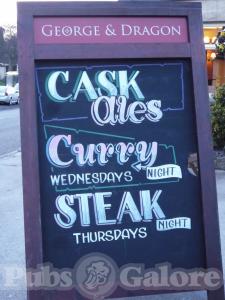 GEORGE & DRAGON
CASK
Ales
Curry
WEDNESDAYS NIGHT
STEAK
NIGHT
THURSDAYS
Pubs Galore